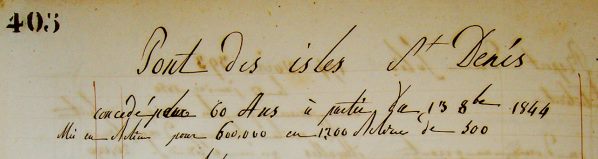 403
Pont des isles St Denis
concédé pour 60 Ans à partir du 13 8bre 1844
Mis en Action pour 600,000 en 1200 Actions de 500